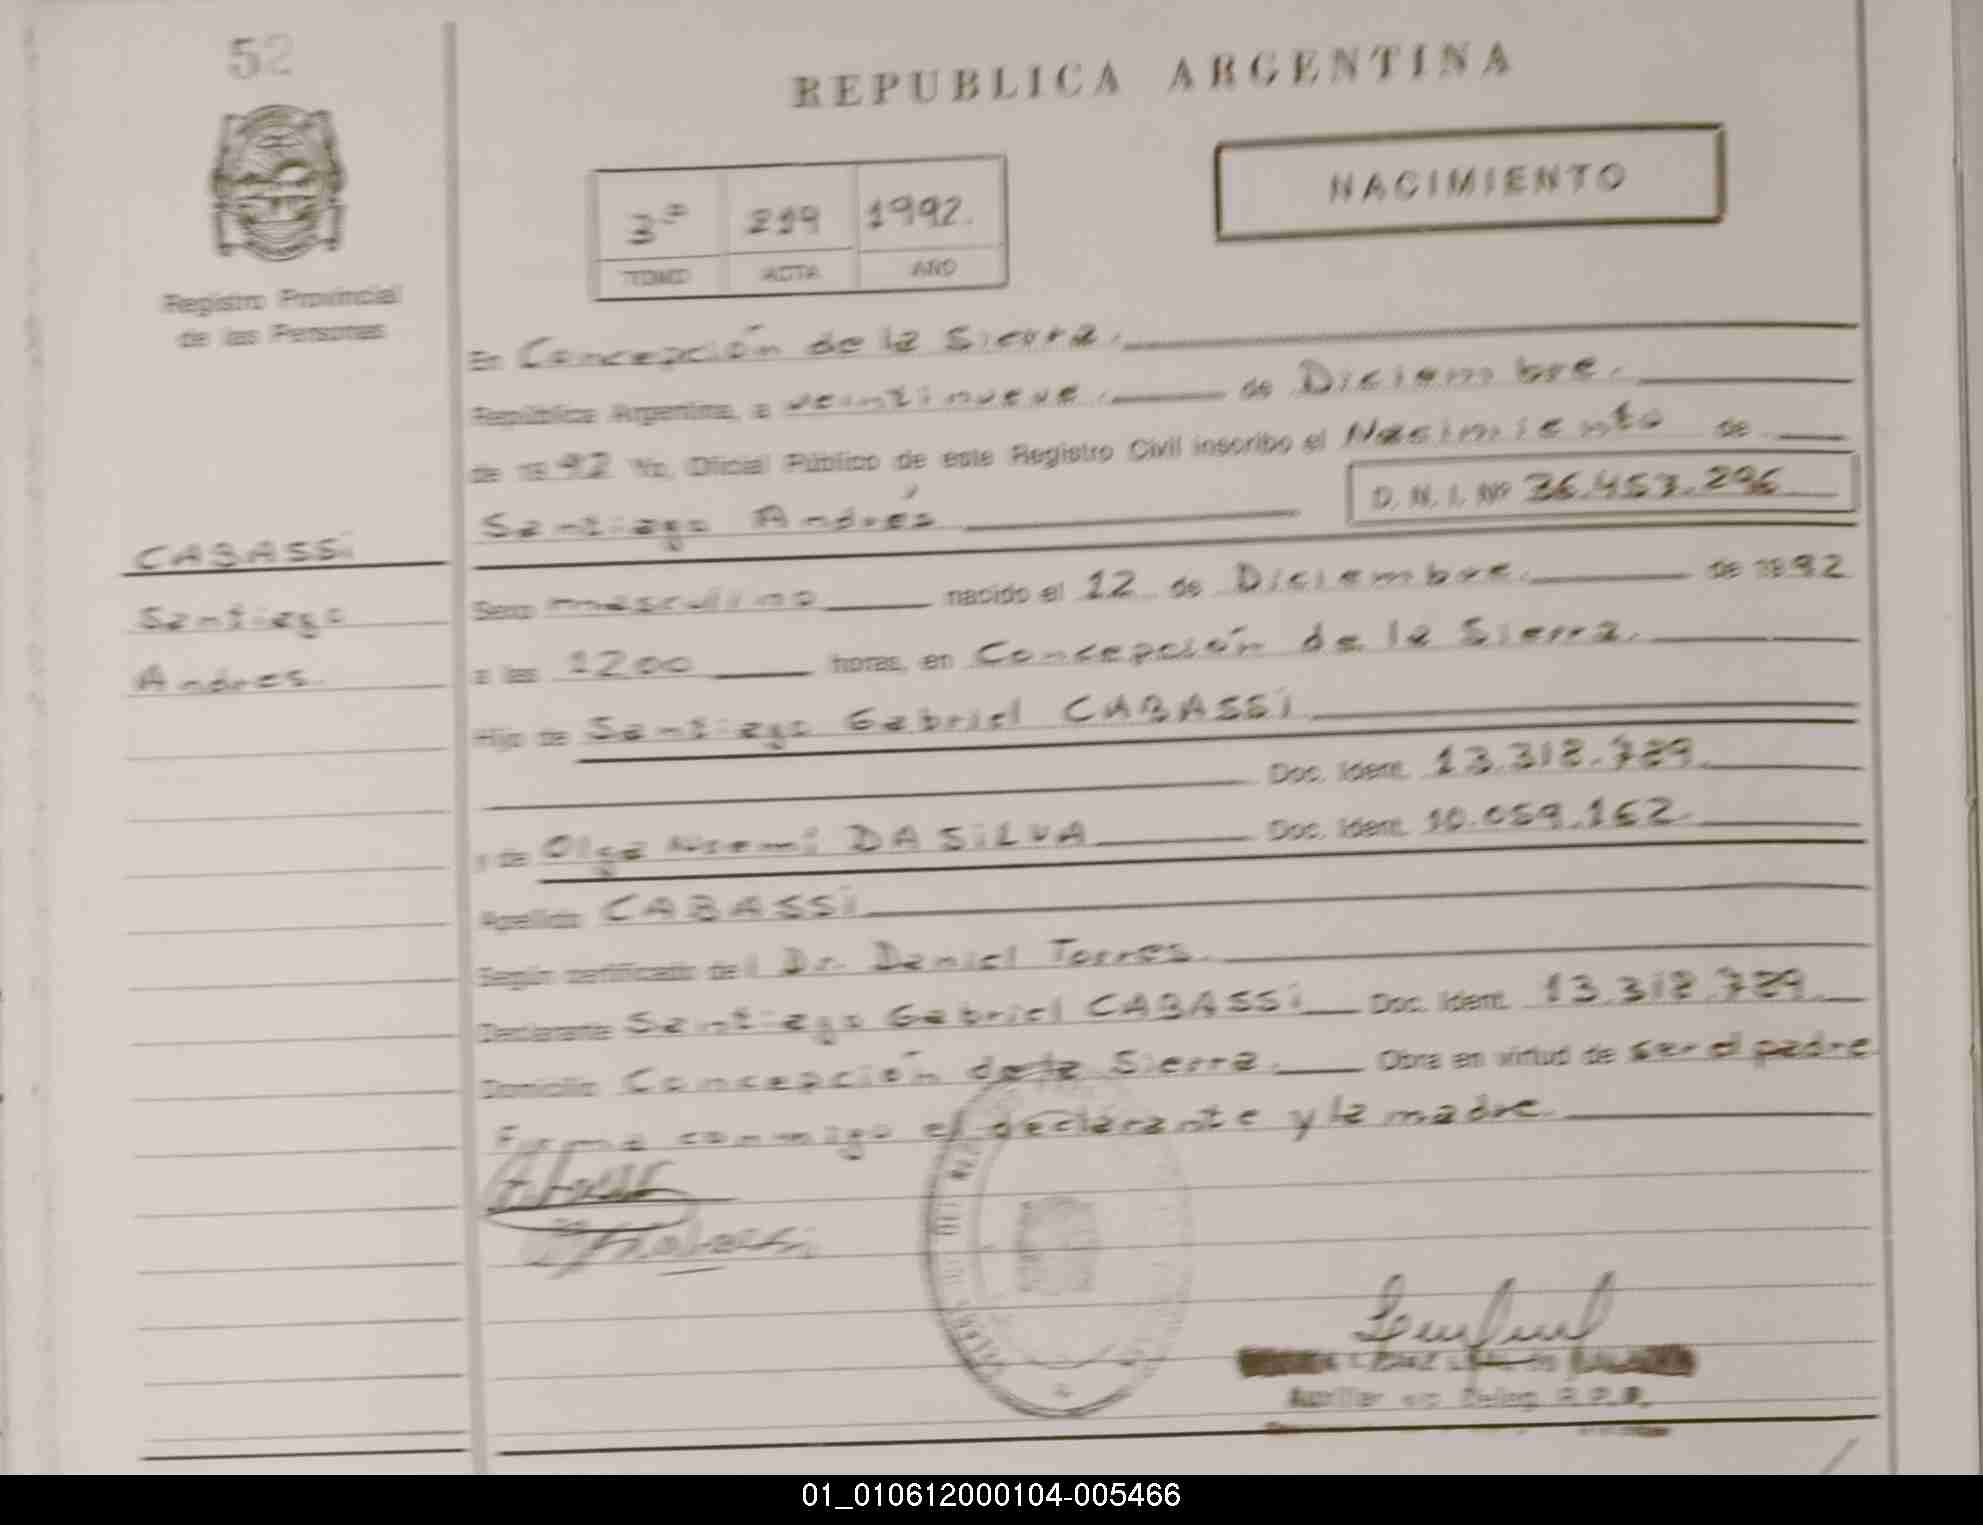 52
REPUBLICA ARGENTINA
NACIMIENTO
3º 219 1992.
TOMO ACTA AÑO
Registro Provincial
de las Personas
En Concepción de la Sierra.
República Argentina, a veintinueve. de Diciembre.
de 1992 Yo, Oficial Público de este Registro Civil inscribo el Nacimiento de
Santiago Andrés D. N. I. Nº 36.457.296
CABASSi
Santiago
Andres.
Sexo masculino nacido el 12 de Diciembre. de 1992
a las 1200 horas, en Concepción de la Sierra.
Hijo de Santiago Gabriel CABASSi
Doc. Ident. 13.318.789.
y de Olga Noemi DA SiLVA Doc. Ident. 10.059.162.
Apellido CABASSi
Según certificado del Dr. Daniel Torres.
Declarante Santiago Gabriel CABASSi Doc. Ident. 13.318.789.
Domicilio Concepción de la Sierra. Obra en virtud de ser el padre
Firma conmigo el declarante y la madre.
Auxiliar Deleg. R.P.P.
01_010612000104-005466